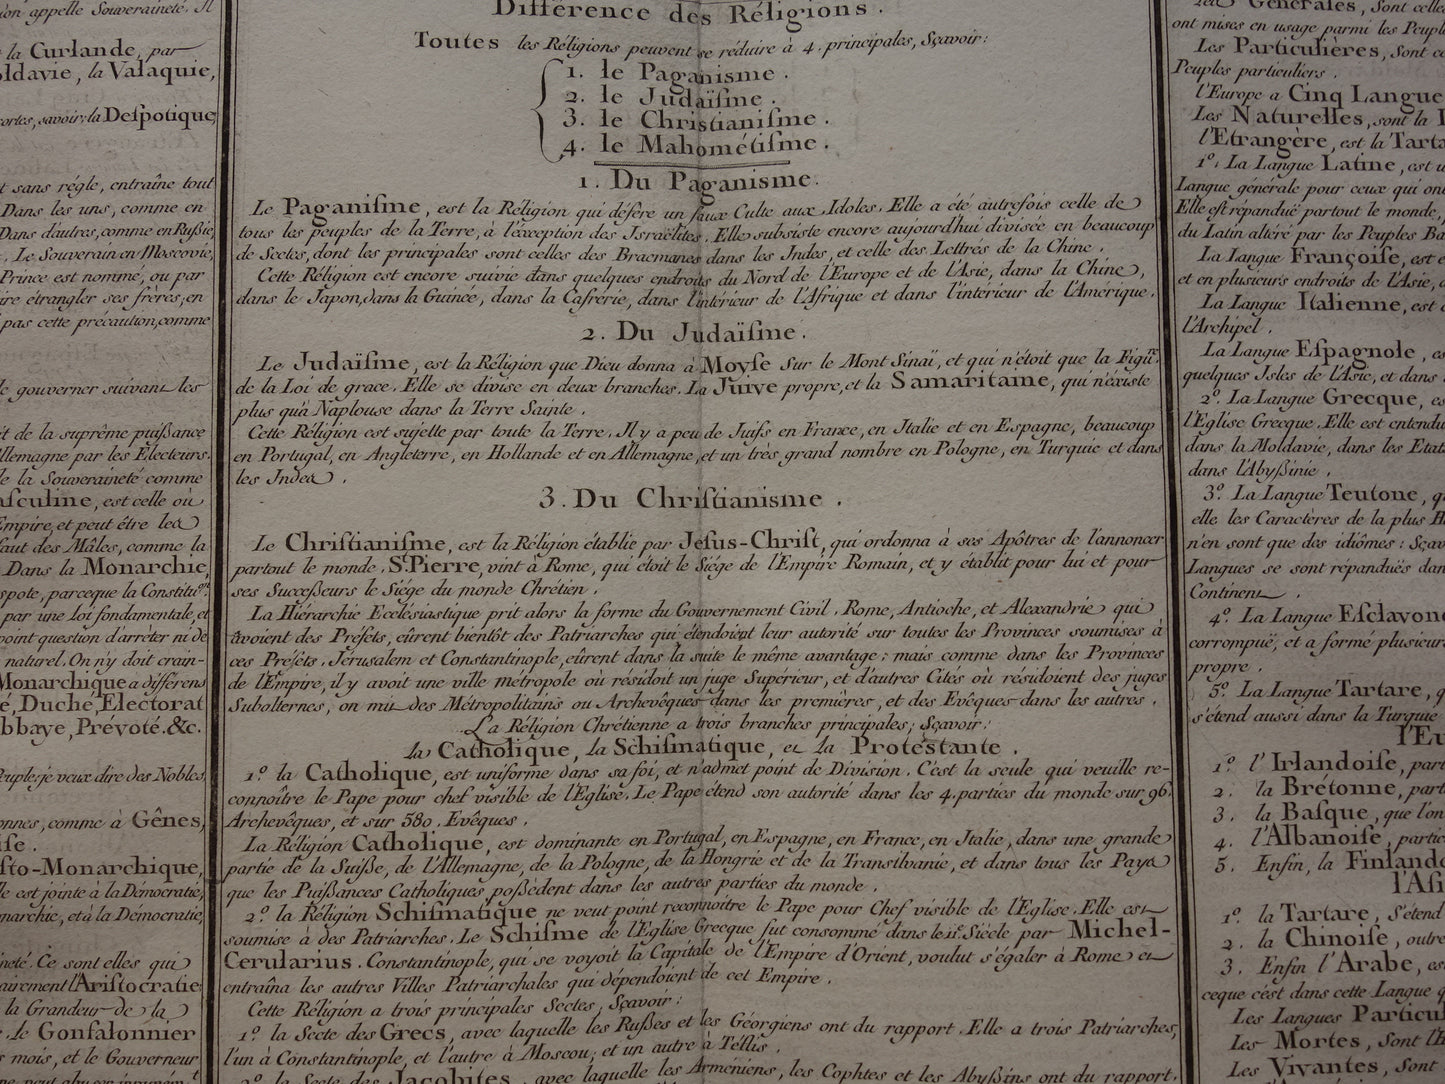 ion appelle Souveraineté. Il
la Curlande, par
oldavie, la Valaquie,
ortes, savoir; la Despotique,
t sans régle, entraîne tout
Dans les uns, comme en
Dans d'autres, comme en Russie,
. Le Souverain en Moscovie,
Prince est nommé, ou par
ire étrangler ses fréres, en
pas cette précaution, comme
le gouverner suivant les
it de la suprême puissance
llemagne par les Electeurs.
de la Souveraineté comme
asculine, est celle où
Empire, et peut être les
faut des Mâles, comme la
Dans la Monarchie,
spote, parceque la Constitu.on
par une loi fondamentale, et
point question d'arrêter ni de
naturel. On n'y doit crain-
Monarchique a différens
é, Duché, Electorat
bbaye, Prévoté. &c.
Peuple: je veux dire des Nobles
onnes, comme à Gênes,
ise.
sto-Monarchique,
lle est jointe à la Démocratie,
narchie, et à la Démocratie,
ineté. Ce sont elles qui
airement l'Aristocratie
la Grandeur de la
le Gonfalonnier
s mois, et le Gouverneur
Différence des Réligions.
Toutes les Réligions peuvent se réduire à 4. principales, Sçavoir:
1. le Paganisme.
2. le Judaïsme.
3. le Christianisme.
4. le Mahométisme.
1. Du Paganisme.
Le Paganisme, est la Réligion qui défére un faux Culte aux Idoles. Elle a été autrefois celle de
tous les peuples de la Terre, à l'exception des Israëlites. Elle subsiste encore aujourd'hui divisée en beaucoup
de Sectes, dont les principales sont celles des Bracmanes dans les Indes, et celle des Lettrés de la Chine.
Cette Réligion est encore suivie dans quelques endroits du Nord de l'Europe et de l'Asie, dans la Chine,
dans le Japon, dans la Guinée, dans la Cafrerie, dans l'intérieur de l'Afrique et dans l'intérieur de l'Amérique.
2. Du Judaïsme.
Le Judaïsme, est la Réligion que Dieu donna à Moyse sur le Mont Sinaï, et qui n'étoit que la Fig.re
de la Loi de grace. Elle se divise en deux branches. La Juive propre, et la Samaritaine, qui n'éxiste
plus qu'à Naplouse dans la Terre Sainte.
Cette Réligion est sujette par toute la Terre. Il y a peu de Juifs en France, en Italie et en Espagne, beaucoup
en Portugal, en Angleterre, en Hollande et en Allemagne, et un trés grand nombre en Pologne, en Turquie et dans
les Indes.
3. Du Christianisme.
Le Christianisme, est la Réligion établie par Jesus-Christ, qui ordonna à ses Apôtres de l'annoncer
partout le monde. St. Pierre, vint à Rome, qui étoit le Siége de l'Empire Romain, et y établit pour lui et pour
ses Successeurs le Siége du monde Chrétien.
La Hiérarchie Ecclésiastique prit alors la forme du Gouvernement Civil. Rome, Antioche, et Alexandrie qui
avoient des Préfets, eûrent bientôt des Patriarches qui étendoient leur autorité sur toutes les Provinces soumises à
ces Préfets. Jérusalem et Constantinople, eûrent dans la suite le même avantage: mais comme dans les Provinces
de l'Empire, il y avoit une ville métropole où résidoit un juge Superieur, et d'autres Cités où résidoient des juges
Subolternes, on mit des Métropolitains ou Archevêques dans les premières, et des Evêques dans les autres.
La Réligion Chrétienne a trois branches principales; Sçavoir:
la Catholique, la Schismatique, et la Protestante.
1.º la Catholique, est uniforme dans sa foi, et n'admet point de Division. C'est la seule qui veuille re-
connoître le Pape pour chef visible de l'Eglise. Le Pape étend son autorité dans les 4. parties du monde sur 96.
Archevêques, et sur 580. Evêques.
La Réligion Catholique, est dominante en Portugal, en Espagne, en France, en Italie, dans une grande
partie de la Suisse, de l'Allemagne, de la Pologne, de la Hongrie et de la Transilvanie, et dans tous les Pays
que les Puissances Catholiques possèdent dans les autres parties du monde.
2.º la Réligion Schismatique ne veut point reconnoitre le Pape pour Chef visible de l'Eglise. Elle est
soumise à des Patriarches. Le Schisme de l'Eglise Grecque fut consommé dans le 11.e Siécle par Michel-
Cerularius. Constantinople, qui se voyoit la Capitale de l'Empire d'Orient, voulut s'égaler à Rome et
entraîna les autres Villes Patriarchales qui dépendoient de cet Empire.
Cette Réligion a trois principales Sectes, Sçavoir:
1.º la Secte des Grecs, avec laquelle les Russes et les Géorgiens ont du rapport. Elle a trois Patriarches,
l'un à Constantinople, et l'autre à Moscou; et un autre à Teflis.
2.º la Secte des Jacobites, avec laquelle les Arméniens, les Cophtes et les Abyssins ont du rapport.
Générales, sont celle
ont mises en usage parmi les Peupl
Les Particulières, sont ce
Peuples particuliers.
l'Europe a Cinq Langue
Les Naturelles, sont la
l'Etrangère, est la Tarta
1.º La Langue Latine, est u
Langue générale pour ceux qui on
Elle est répanduë partout le monde,
du Latin altéré par les Peuples Ba
La Langue Françoise, est e
et en plusieurs endroits de l'Asie,
La Langue Italienne, est
l'Archipel.
La Langue Espagnole, es
quelques Isles de l'Asie, et dans
2.º La Langue Grecque, es
l'Eglise Grecque. Elle est entendu
dans la Moldavie, dans les Etat
dans l'Abyssinie.
3.º La Langue Teutone, q
elle les Caractères de la plus H
n'en sont que des idiômes: Sçav
Langues se sont répanduës dan
Continent.
4.º La Langue Esclavone
corrompuë, et a formé plusieur
propre.
5.º La Langue Tartare, q
s'étend aussi dans la Turquie
l'Eu
1.º l'Irlandoise, part
2. la Brétonne, part
3. la Basque, que l'on
4. l'Albanoise, partic
5. Enfin, la Finland
l'Asi
1.º la Tartare, S'étend
2. la Chinoise, outre
3. Enfin l'Arabe, es
ceque c'est dans cette Langue q
Les Langues Particul
Les Mortes, Sont l'H
Les Vivantes, Sont